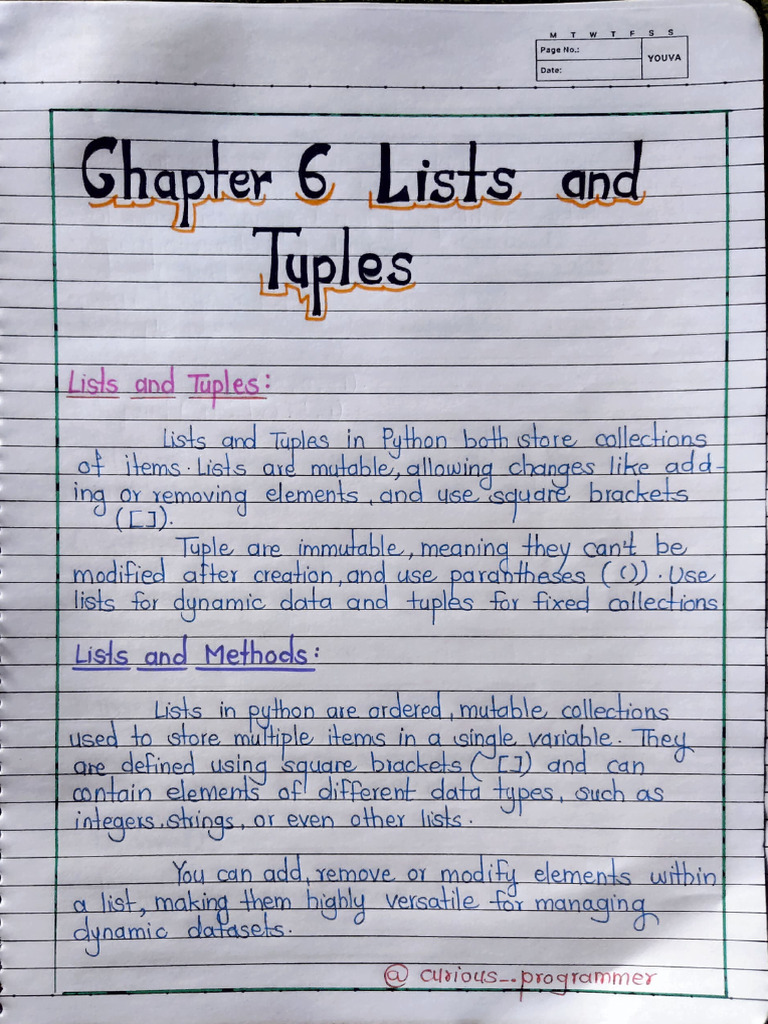 M T W T F S S
Page No.:
YOUVA
Date:
Chapter 6 Lists and
Tuples
Lists and Tuples:
Lists and Tuples in Python both store collections
of items. Lists are mutable, allowing changes like add-
ing or removing elements, and use square brackets
([]).
Tuple are immutable, meaning they can't be
modified after creation, and use parantheses (()). Use
lists for dynamic data and tuples for fixed collections
Lists and Methods:
Lists in python are ordered, mutable collections
used to store multiple items in a single variable. They
are defined using square brackets (`[]) and can
contain elements of different data types, such as
integers, strings, or even other lists.
You can add, remove or modify elements within
a list, making them highly versatile for managing
dynamic datasets.
@ curious_.programmer